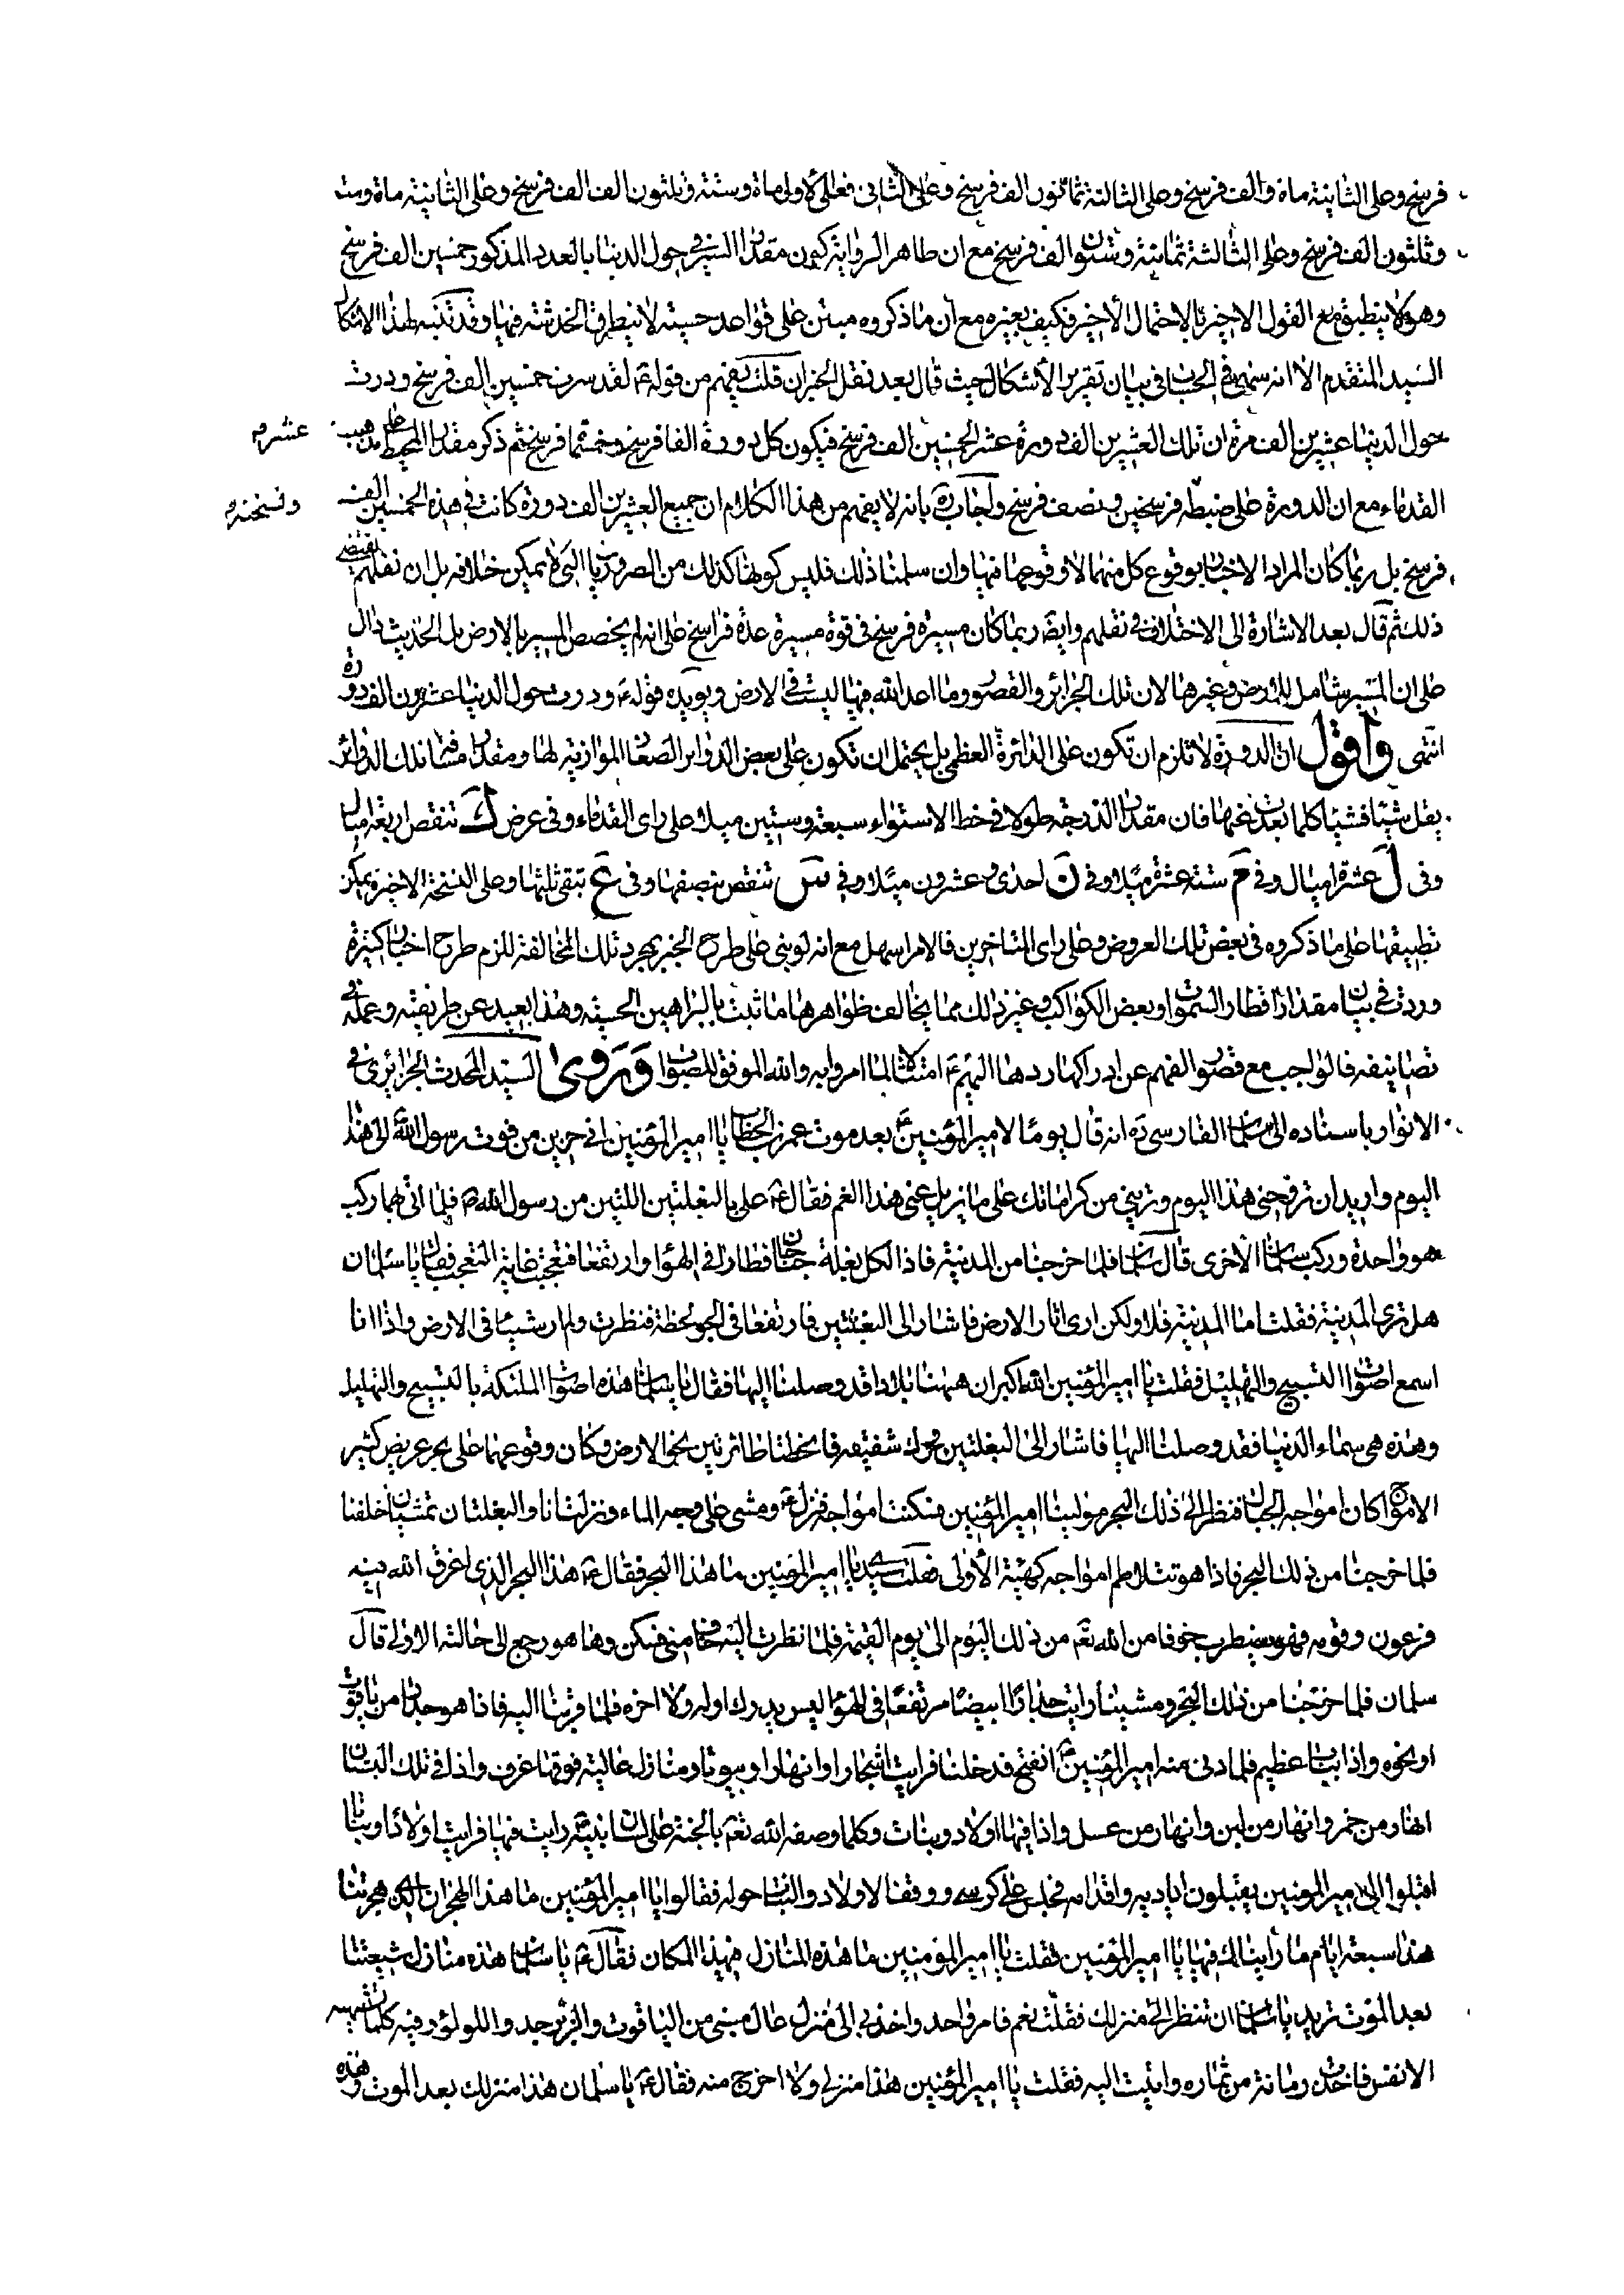 فرسخ وعلى الثانية ماة والف فرسخ وعلى الثالثة ثمانون الف فرسخ وعلى الثانى فعلى الاولى ماة وستة وثلثون الف الف فرسخ وعلى الثانية ماة وست
وثلثون الف فرسخ وعلى الثالثة ثمانية وستون الف فرسخ مع ان ظاهر الرواية كون مقدار السير فى حول الدنيا بالعدد المذكور خمسين الف فرسخ
وهو لا ينطبق مع القول الاخير بالاحتمال الأخير فكيف بغيره مع ان ما ذكروه مبتن على قواعد حسية لا يتطرق الخدشة فيها وقد تنبه لهذا الاشكال
السيد المتقدم الا انه سهى فى الحساب فى بيان تقرير الأشكال حيث قال بعد نقل الخبر ان قلت يفهم من قوله ع لقد سرت خمسين الف فرسخ ودرت
حول الدنيا عشرين الف مرة ان تلك العشرين الف دورة عشر الخمسين الف فرسخ فيكون كل دورة الفا فرسخ وخمسمأ فرسخ ثم ذكر مقدار المحيط على مذهب
عشره
القدماء مع ان الدورة على ضبطه فرسخين ونصف فرسخ واجاب ره بانه لا يفهم من هذا الكلام ان جميع العشرين الف دورة كانت فى هذه الخمسين الف
ونسخته
فرسخ بل ربما كان المراد الاخبار بوقوع كل منهما لا وقوعهما فيها وان سلمنا ذلك فليس كونها كذلك من الضروريات التى لا يمكن خلافه بل ان نقلهم يقتضى
ذلك ثم قال بعد الاشارة الى الاختلاف فى نقلهم وايضا ربما كان مسيرة فرسخ فى قوة مسيرة عدة فراسخ على انه لم يخصص المسير بالارض بل الحديث دال
على ان المسير شامل للارض وغيرها لان تلك الجزائر والقصور وما اعد الله فيها ليست فى الارض ويؤيده قوله ع ودرت حول الدنيا عشرون الف دورة
انتهى واقول ان الدورة لا تلزم ان تكون على الدائرة العظمى بل يحتمل ان تكون على بعض الدوابر الصغار الموازية لها ومقدار مشا تلك الدوائر
يقل شيئا فشيئا كلما بعدت عنها فان مقدار الدرجة طولا فى خط الاستواء سبعة وستين ميلا على راى القدماء وفى عرض ك تنقص اربعة اميال
وفى ل عشرة اميال وفى م ستة عشرة ميلا وفى ن احدى وعشرون ميلا وفى س تنقص بنصفها وفى ع تبقى ثلثها وعلى النسخة الاخيرة يمكن
تطبيقها على ما ذكروه فى بعض تلك العروض وعلى راى المتاخرين فالامر اسهل مع انه لو بنى على طرح الخبر بمجرد تلك المخالفة للزم طرح اخبار كثيرة
وردت فى بيان مقدار اقطار السموات او بعض الكواكب وغير ذلك مما يخالف ظواهرها ما ثبت بالبراهين الحسية وهذا بعيد عن طريقته وعمله فى
تصانيفه فالواجب مع قصور الفهم عن ادراكها ردها اليهم ع امتثالا لما امروا به والله الموفق للصواب وروى السيد المحدث الجزائرى فى
الانوار باسناده الى سلمان الفارسى ره انه قال يوما لامير المؤمنين ع بعد موت عمر بن الخطاب يا امير المؤمنين انى حزين من فوت رسول الله ص الى هذا
اليوم واريد ان تروحنى هذا اليوم وترينى من كراماتك على ما يزيل عنى هذا الغم فقال ع على بالبغلتين اللتين من رسول الله ص فلما اتى بهما ركب
هو واحدة وركب سلمان الأخرى قال سلمان فلما خرجنا من المدينة فاذا لكل بغلة جناحان فطارا فى الهواء وارتفعا فتعجبت غاية التعجب فقال يا سلمان
هل ترى المدينة فقلت اما المدينة فلا ولكن ارى اثار الارض فاشار الى البغلتين فارتفعا فى الجو لحظة فنظرت ولم ار شيئا فى الارض واذا انا
اسمع اصوات التسبيح والتهليل فقلت يا امير المؤمنين الله اكبر ان ههنا بلادا قد وصلنا اليها فقال يا سلمان هذه اصوات الملئكة بالتسبيح والتهليل
وهذه هى سماء الدنيا فقد وصلنا اليها فاشار الى البغلتين وحرك شفتيه فانحطتا طائرتين نحو الارض وكان وقوعهما على بحر عريض كثير
الامواج كان امواجه الجبال فنظر الى ذلك البحر مولينا امير المؤمنين فسكنت امواجه فنزل ع ومشى على وجه الماء ونزلت انا والبغلتان تمشيان خلفنا
فلما خرجنا من ذلك البحر فاذا هو تتلاطم امواجه كهيئة الأولى فقلت سيدى يا امير المؤمنين ما هذا البحر فقال ع هذا البحر الذى اغرق الله فيه
فرعون وقومه فهو يضطرب خوفا من الله تعم من ذلك اليوم الى يوم القيمة فلما نظرت اليه خاف منى فسكن وها هو رجع الى حالته الاولى قال
سلمان فلما خرجنا من ذلك البحر ومشينا رايت جدارا ابيضا مرتفعا فى الهواء ليس يدرك اوله ولا اخره فلما قربنا اليه فاذا هو جدار من ياقوت
او نحوه واذا بباب عظيم فلما دنى منه امير المؤمنين ع انفتح فدخلنا فرايت اشجارا وانهارا وبيوتا ومنازل عالية فوقها غرف واذا فى تلك البستان
انهار من خمر وانهار من لبن وانهار من عسل واذا فيها اولاد وبنات وكلما وصفه الله تعم بالجنة على لسان نبيه رايت فيها فرايت اولادا وبناتا
اقبلوا الى امير المؤمنين يقبلون اياديه واقدامه فجلس على كرسى ووقف الاولاد والبنات حوله فقالوا يا امير المؤمنين ما هذا الهجران الذى هجرتنا
هذا سبعة ايام ما رايناك فيها يا امير المؤمنين فقلت يا امير المؤمنين ما هذه المنازل فى هذا المكان فقال ع يا سلمان هذه منازل شيعتنا
بعد الموت تريد يا سلمان ان تنظر الى منزلك فقلت نعم فامر واحدا واخذ بى الى منزل عال مبنى من الياقوت والزبرجد واللؤلؤ وفيه كلما تشتهيه
الانفس فاخذت رمانة من ثماره واتيت اليه فقلت يا امير المؤمنين هذا منزلى ولا اخرج منه فقال ع يا سلمان هذا منزلك بعد الموت وهذه